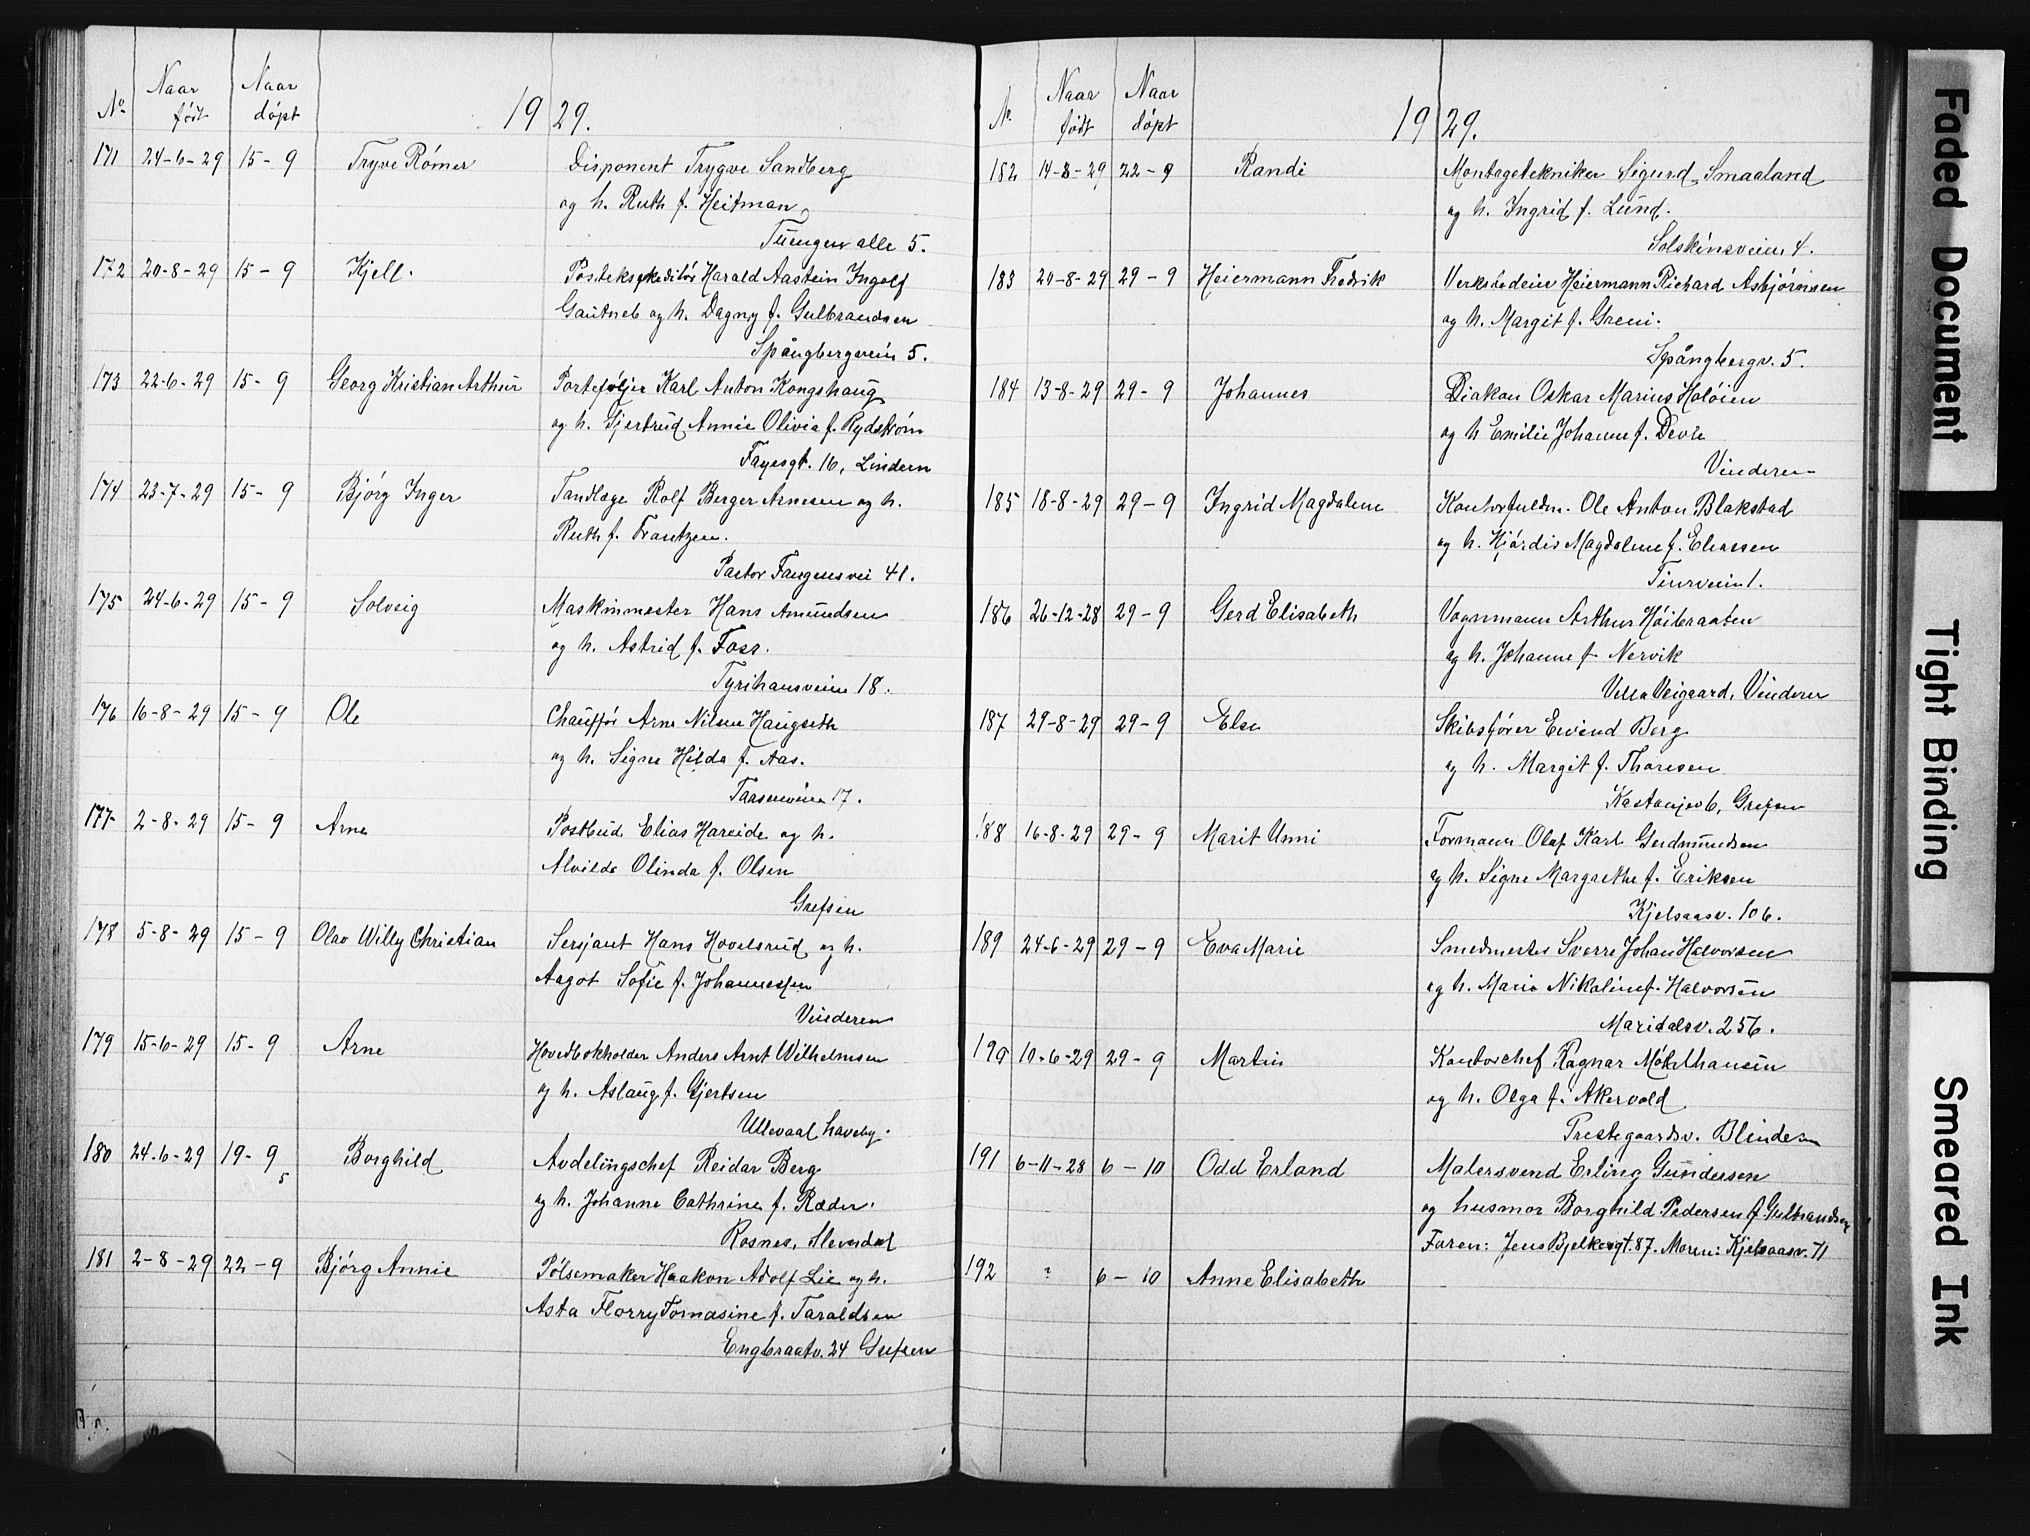 No. Naar født Naar døpt 1929.
171 24-6-29 15-9 Tryve Rómer Disponent Trygve Sandberg
og h. Ruth f. Heitman
Tuengen alle 5.
172 20-8-29 15-9 Kjell. Postekspeditør Harald Aastein Ingolf
Gautneb og h. Dagny f. Gulbrandsen
Spångbergveien 5.
173 22-6-29 15-9 Georg Kristian Arthur Portefølje Karl Anton Kongshaug
og h. Gjertrud Annie Olivia f. Rydstrøm
Fayesgt. 16, Lindern
174 23-7-29 15-9 Bjórg Inger Tandlæge Rolf Berger Arnesen og h.
Ruth f. Frantzen.
Pastor Fangens vei 41.
175 24-6-29 15-9 Solveig Maskinmester Hans Amundsen
og h. Astrid f. Foss.
Tyrihansveien 18.
176 16-8-29 15-9 Ole Chauffør Arne Nilsen Haugseth
og h. Signe Hilda f. Aas.
Taasenveien 17.
177 2-8-29 15-9 Arne Postbud Elias Hareide og h.
Alvilde Olinda f. Olsen
Grefsen
178 5-8-29 15-9 Olav Willy Christian Sersjant Hans Hovelsrud og h.
Aagot Sofie f. Johannessen
Vinderen
179 15-6-29 15-9 Arne Hovedbokholder Anders Arnt Wilhelmsen
og h. Aslaug f. Gjertsen
Ullevaal haveby.
180 24-6-29 19-9 Borghild Avdelingschef Reidar Berg
5
og h. Johanne Cathrine f. Ræder.
Rosnes, Slemdal
181 2-8-29 22-9 Bjórg Annie Pólsemaker Haakon Adolf Lie og h.
Asta Florry Tomasine f. Taraldsen
Engbraatv. 24 Grefsen
N. Naar født Naar døpt 1929.
182 14-8-29 22-9 Randi Montagetekniker Sigurd Smaaland
og h. Ingrid f. Lund.
Solskinsveien 4.
183 20-8-29 29-9 Heiermann Fredrik Verkstedeier Heiermann Richard Asbjørnsen
og h. Margit f. Greni.
Spångbergv. 5.
184 13-8-29 29-9 Johannes Diakon Oskar Marius Holóien
og h Emilie Johanne f. Devle
Vinderen
185 18-8-29 29-9 Ingrid Magdalene Kontorfuldm. Ole Anton Blakstad
og h. Hjórdis Magdalene f. Eliassen
Tiurveien 1.
186 26-12-28 29-9 Gerd Elisabeth Vognmann Arthur Hóibraaten
og h. Johanne f. Nervik
Villa Veigaard, Vinderen
187 29-8-29 29-9 Else Skibsfører Eivind Berg
og h. Margit f. Thoresen
Kastanjev 6, Grefsen
188 16-8-29 29-9 Marit Unni Formann Olaf Karl Gudmundsen
og h. Signe Margrethe f. Eriksen
Kjelsaasv. 106.
189 24-6-29 29-9 Eva Marie Smedmester Sverre Johan Halvorsen
og h. Marie Nikoline f. Halvorsen
Maridalsv. 256.
190 10-6-29 29-9 Martin Kontorchef Ragnar Móklthausen
og h. Olga f. Akervold
Prestegaardsv. Blindern
191 6-11-28 6-10 Odd Erland Malersvend Erling Gundersen
og husmor Borghild Pedersen f. Gulbrandsen
Faren: Jens Bjelkesgt. 87. Moren: Kjelsaasv. 71
192 ? 6-10 Anne Elisabeth
Faded Document
Tight Binding
Smeared Ink